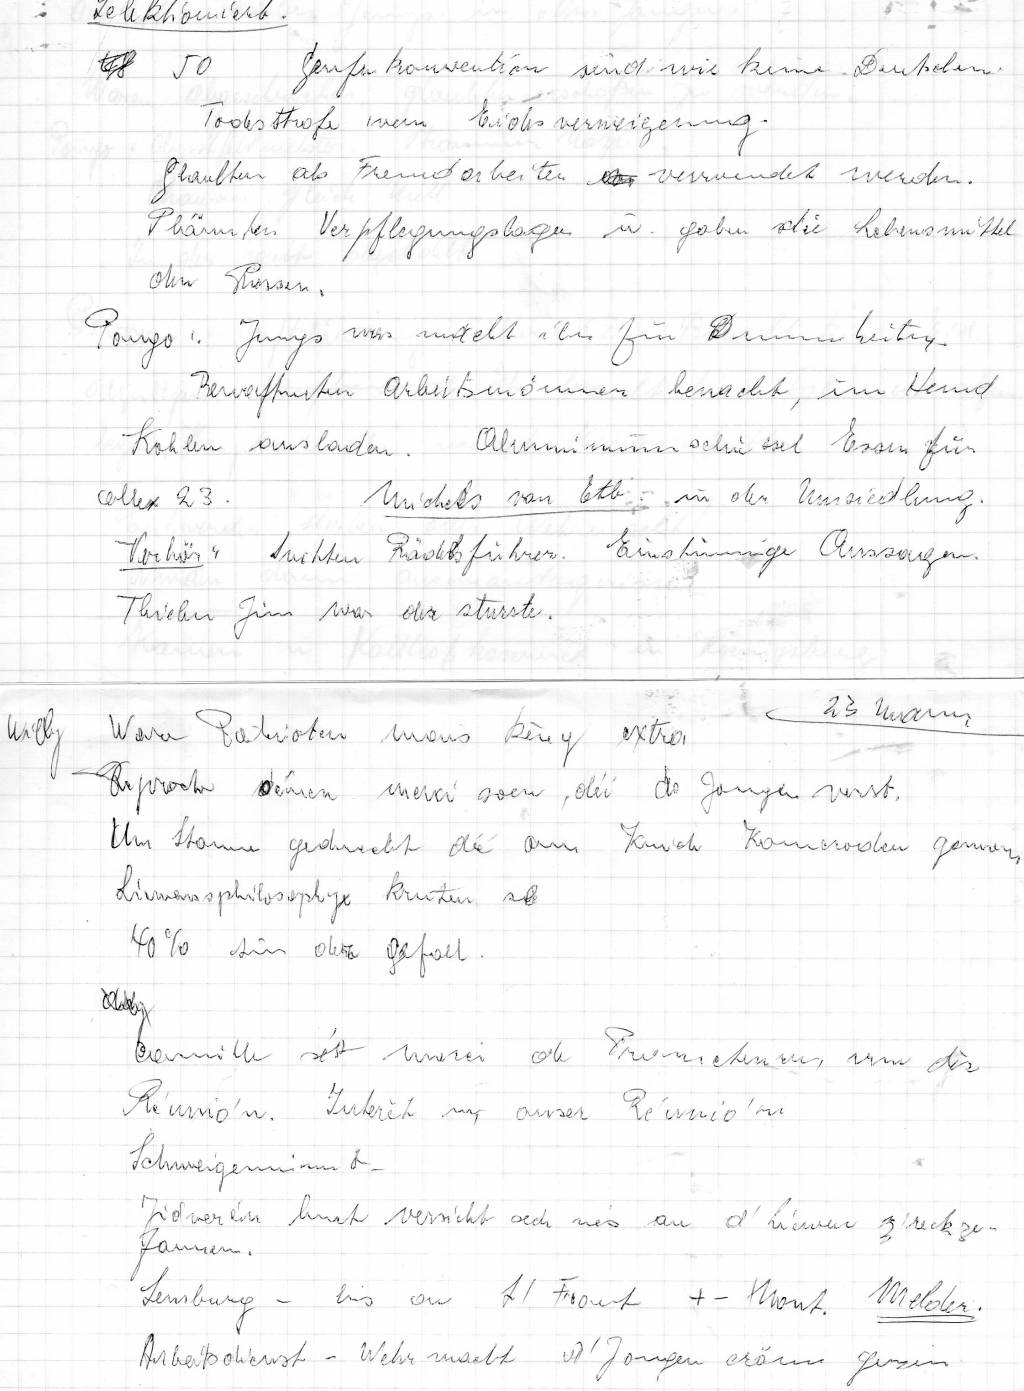 Selektioniert.
50 Genfer konvention sind wir keine Deutschen.
Todesstrafe wenn Eidesverweigerung.
Glaubten als Fremdarbeiter verwendet werden.
Plünderten Verpflegungslager u. gaben die Lebensmittel
den Russen.
Pongo: Jungs was macht ihr für Dummheiten
Bewaffneten Arbeitsmänner bewacht, im Hemd
Kohlen ausladen. Aluminiumschüssel Essen für
alle 23. Michels van Ettb: in der Umsiedlung.
Verhör: Suchten Rädelsführer. Einstimmige Aussagen.
Thielen Jim war der sturste.
23 Mann
Willy Ware Patrioten mans keng extra
merci soen, déi de Jongen verst.
Um Stamm gedréckt déi am Krich Komeroden
Liewensphilosophie
40% sin der gefall.
Camille sét merci de um dës
Réunió'n. Interêt un onser Réunió'n
Schweigeminut -
Jidverén huet versicht sech nës an d'Liewen zreckze-
fannen.
Sensburg - bis an d'Front +- Mont. Melder.
Arbeitsdienst - Wehrmacht d'Jongen